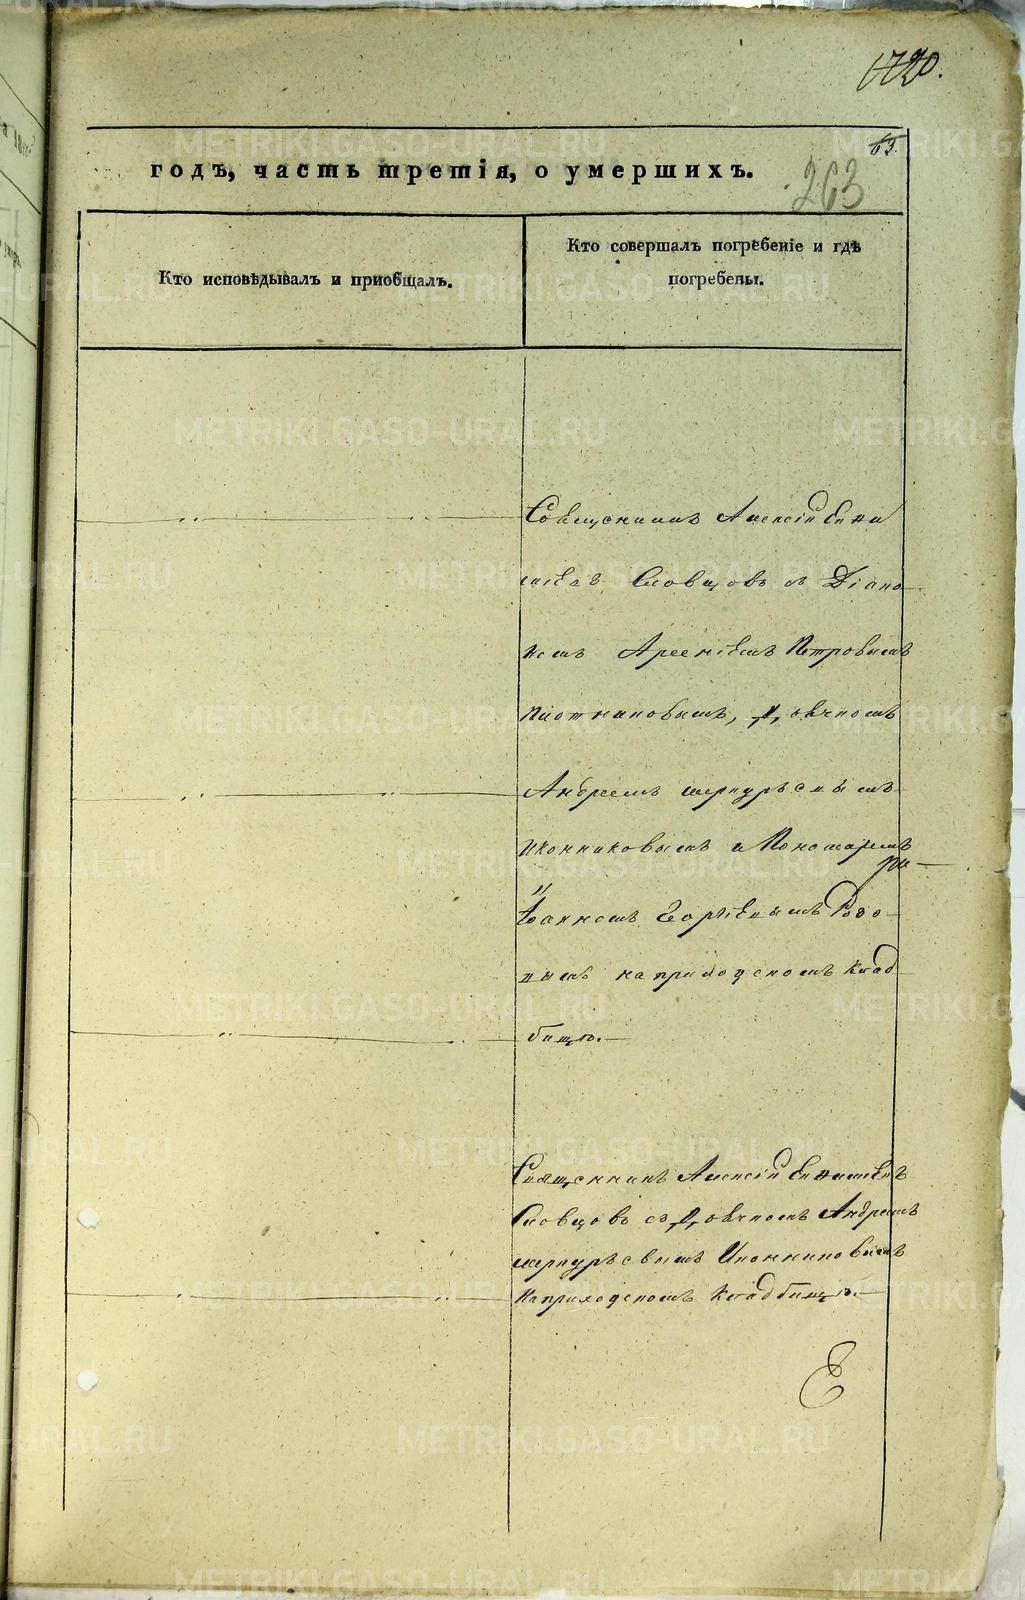 1720.
63.
годъ, часть третія, о умершихъ.
263
Кто исповѣдывалъ и пріобщалъ.
Кто совершалъ погребеніе и гдѣ
погребены.
Алексій
Словцовъ съ Діако
номъ Арсеніемъ Петровымъ
Плотниковымъ, дьячкомъ
Андреемъ
Иконниковымъ и Пономаремъ
Іоанномъ
на приходскомъ клад
бищѣ.
Священникъ Алексій
Словцовъ съ дьячкомъ Андреемъ
Иконниковымъ
на приходскомъ кладбищѣ.
METRIKI.GASO-URAL.RU